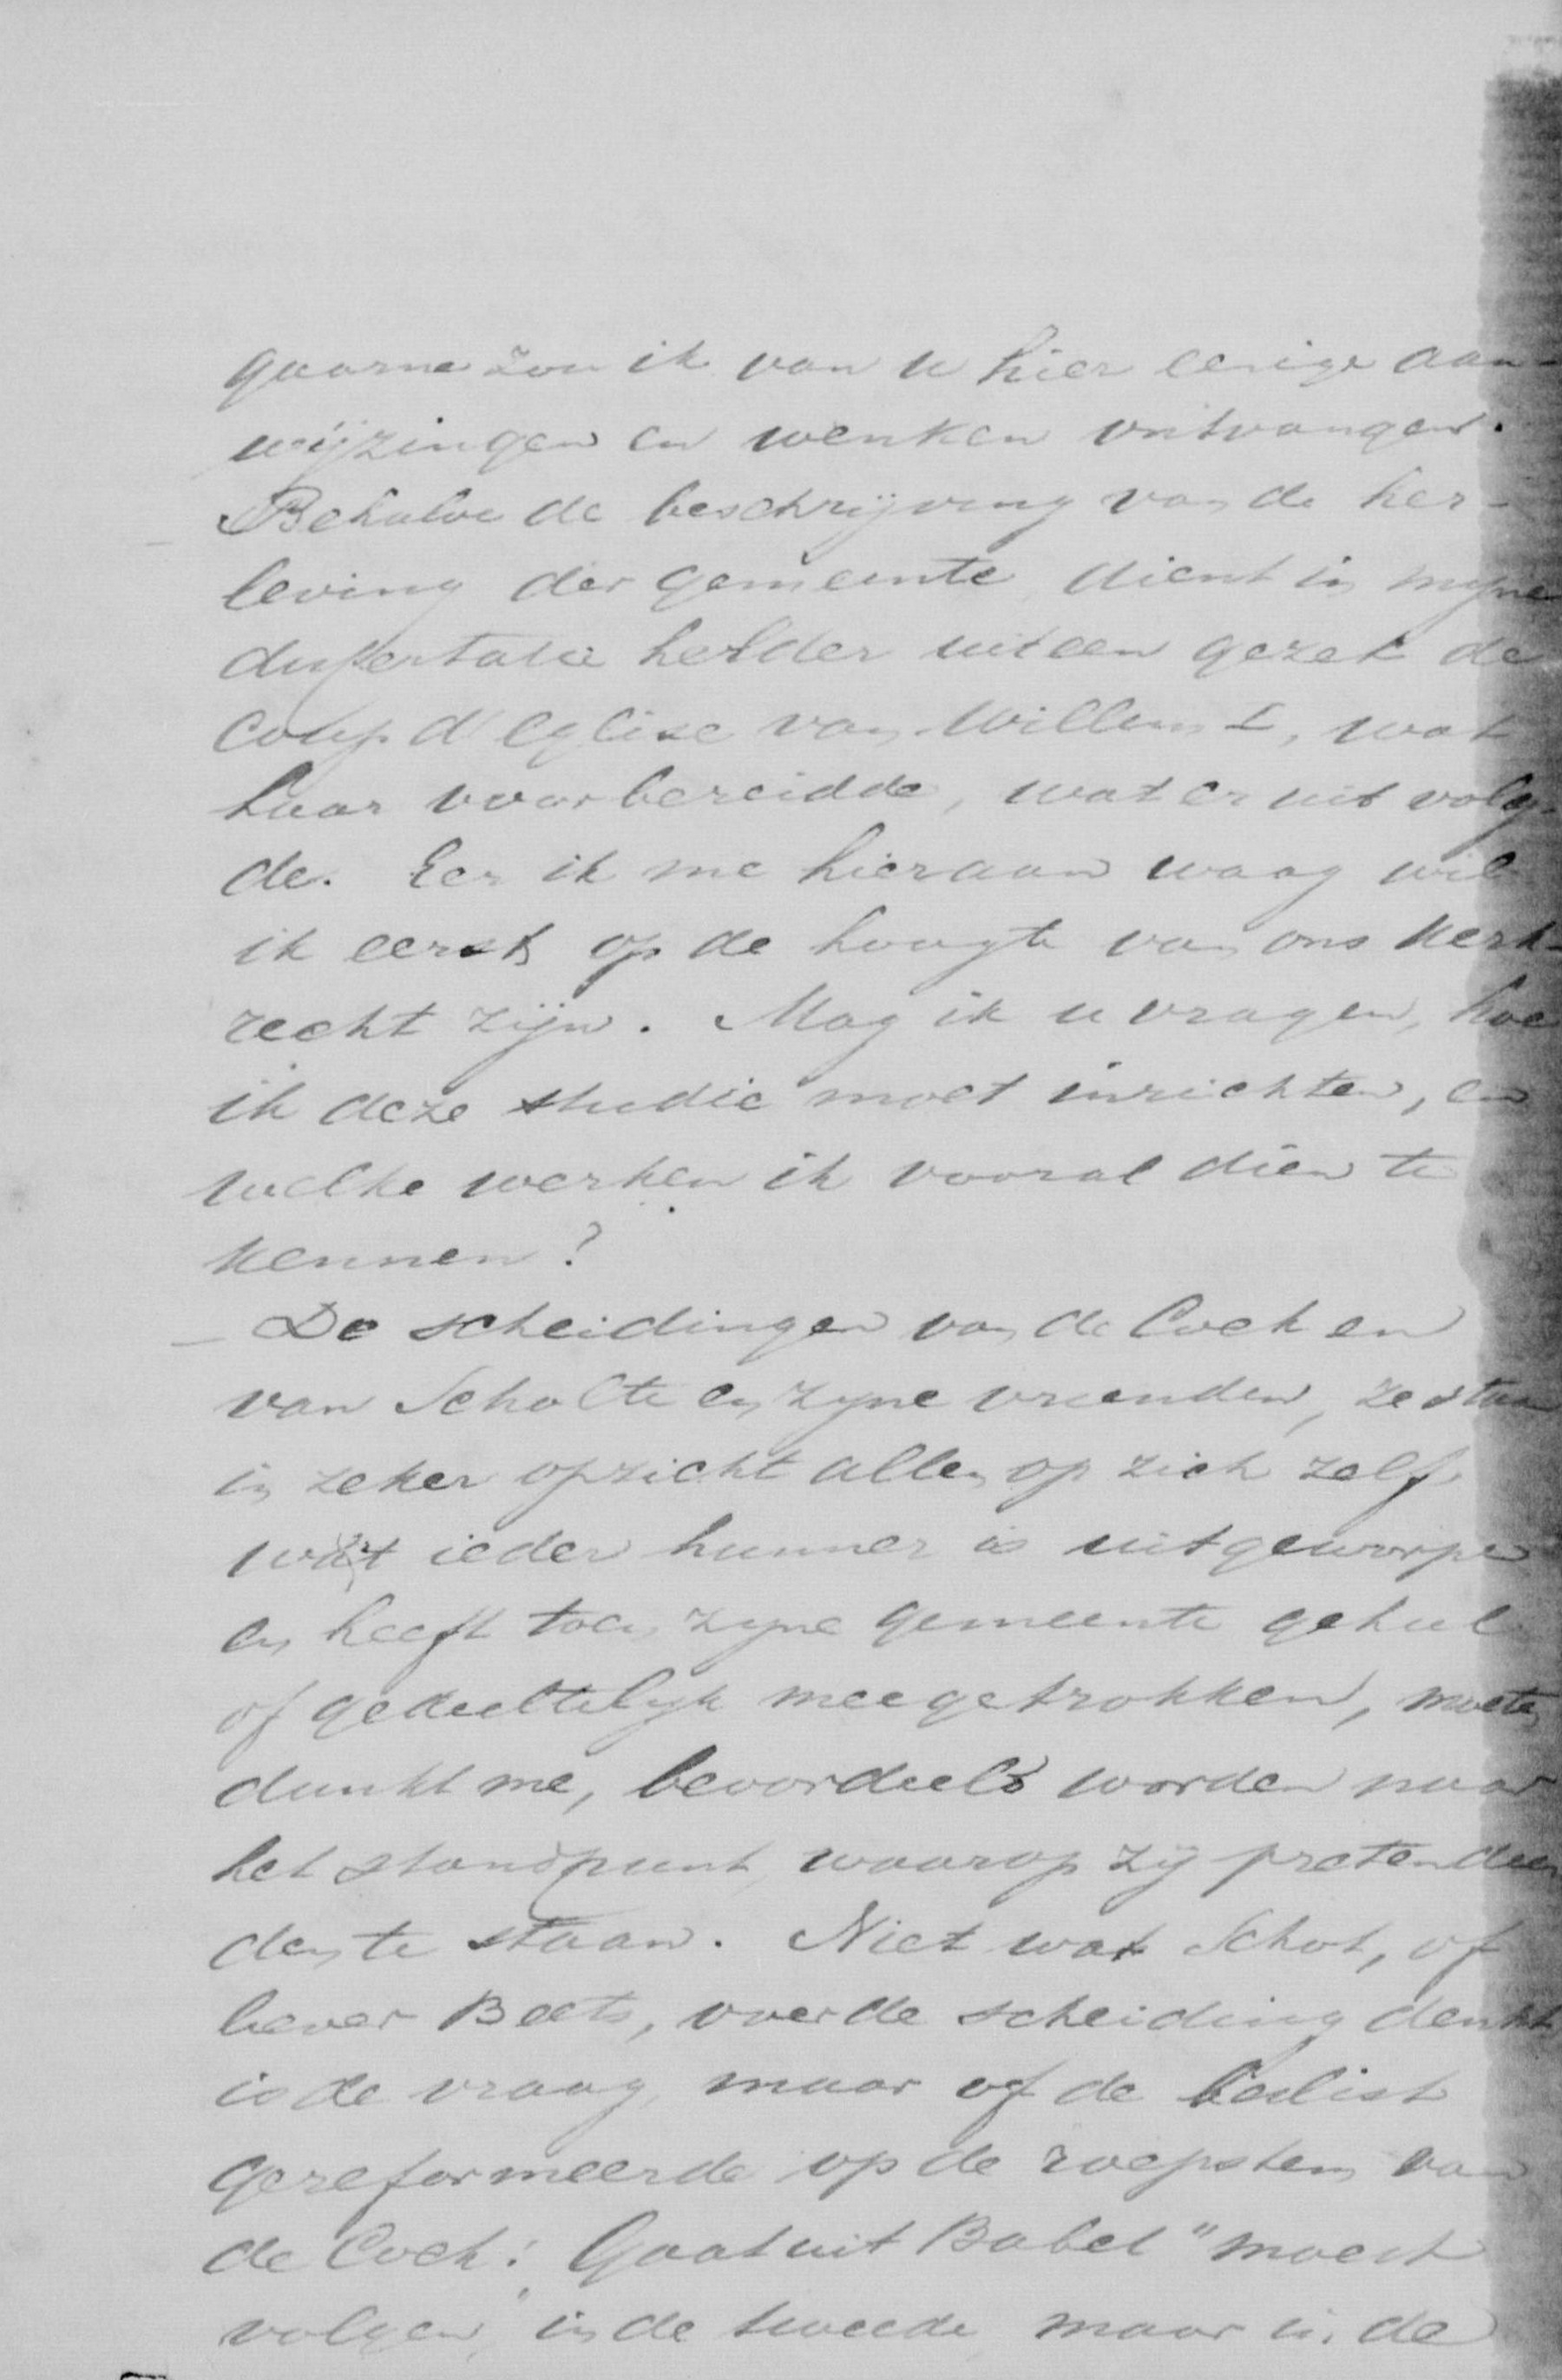 gaarne zou ik van u hier eenige aan-
wijzingen en wenken ontvangen.
Behalve de beschrijving van de her-
leving der gemeente dient in mijne
dissertatie helder uiteen gezet de
coup d'eglise van Willem I, wat
haar voorbereidde, wat er uit volg-
de. Eer ik me hieraan waag wil
ik eerst op de hoogte van ons kerk-
recht zijn. Mag ik u vragen, hoe
ik deze studie moet inrichten, en
welke werken ik vooral dien te
kennen?
De scheidingen van de Cock en
van Scholte en zyne vrienden, ze staan
in zeker opzicht allen op zich zelf
want ieder hunner is uitgeworpen
en heeft toen zyne gemeente geheel
of gedeeltelyk meegetrokken, moeten
dunkt me, beoordeeld worden naar
het standpunt waarop zij pretendeer
den te staan. Niet wat Schot, of
liever Beets, over de scheiding denkt
is de vraag, maar of de
gereformeerde op de roepstem van
de Cock: Gaat uit Babel" moest
volgen, in de tweede maar in de